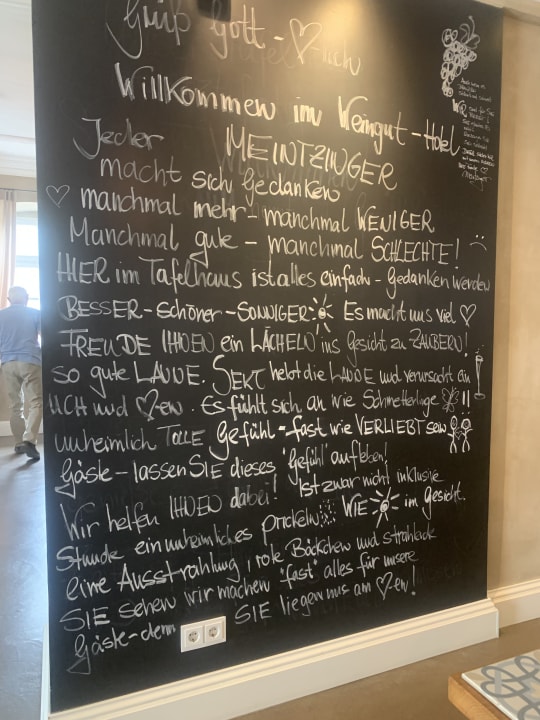 Grüß Gott - ♡-lich
Willkommen im Weingut-Hotel
MEINTZINGER
Jeder
macht sich Gedanken
♡ manchmal mehr - manchmal WENIGER
Manchmal gute - manchmal SCHLECHTE!
HIER im Tafelhaus ist alles einfach - Gedanken werden
BESSER - Schöner - SONNIGER Es macht uns viel ♡
FREUDE IHNEN ein LÄCHELN ins Gesicht zu ZAUBERN!
so gute LAUNE. SEKT hebt die LAUNE und verursacht ein
UCH und ♡-en. Es fühlt sich an wie Schmetterlinge !!
unheimlich TOLLE Gefühl - fast wie VERLIEBT sein
Gäste - lassen SIE dieses "Gefühl" aufleben!
Wir helfen IHNEN dabei! Ist zwar nicht inklusive
Stunde ein unheimliches prickeln WIE im Gesicht.
eine Ausstrahlung, rote Bäckchen und strahlende
SIE sehen wir machen "fast" alles für unsere
Gäste - denn SIE liegen uns am ♡-en!